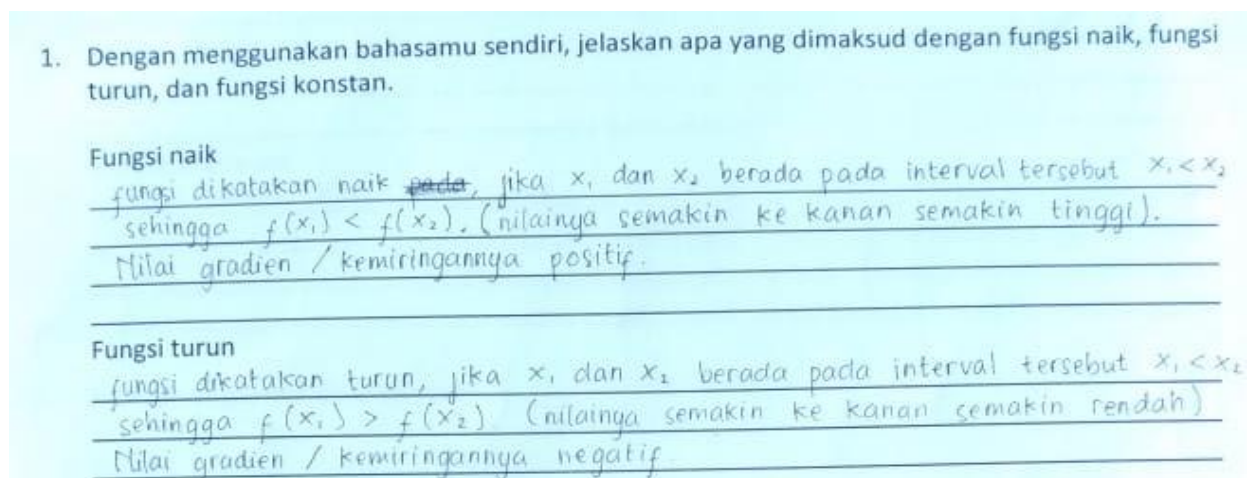 1. Dengan menggunakan bahasamu sendiri, jelaskan apa yang dimaksud dengan fungsi naik, fungsi
turun, dan fungsi konstan.
Fungsi naik
fungsi dikatakan naik pada, jika x₁ dan x₂ berada pada interval tersebut x₁ < x₂
sehingga f(x₁) < f(x₂). (nilainya semakin ke kanan semakin tinggi).
Nilai gradien / kemiringannya positif.
Fungsi turun
fungsi dikatakan turun, jika x₁ dan x₂ berada pada interval tersebut x₁ < x₂
sehingga f(x₁) > f(x₂) (nilainya semakin ke kanan semakin rendah)
Nilai gradien / kemiringannya negatif